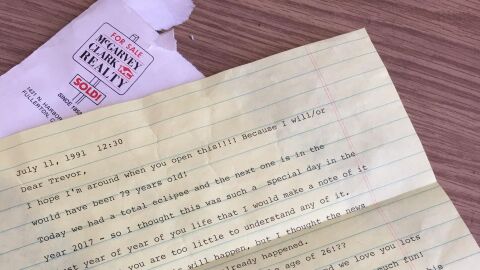 FOR SALE
McGARVEY
CLARK MC
REALTY
SOLD!
SINCE
1431 N. HARBOR
FULLERTON, C
July 11, 1991 12:30
Dear Trevor,
I hope I'm around when you open this!!!! Because I will/or
would have been 79 years old!
Today we had a total eclipse and the next one is in the
year 2017 - so I thought this was such a special day in the
st year of year of you life that I would make a note of it
you are too little to understand any of it.
will happen, but I thought the news
already happened.
age of 26???
nd we love you lots
ch fun!
is